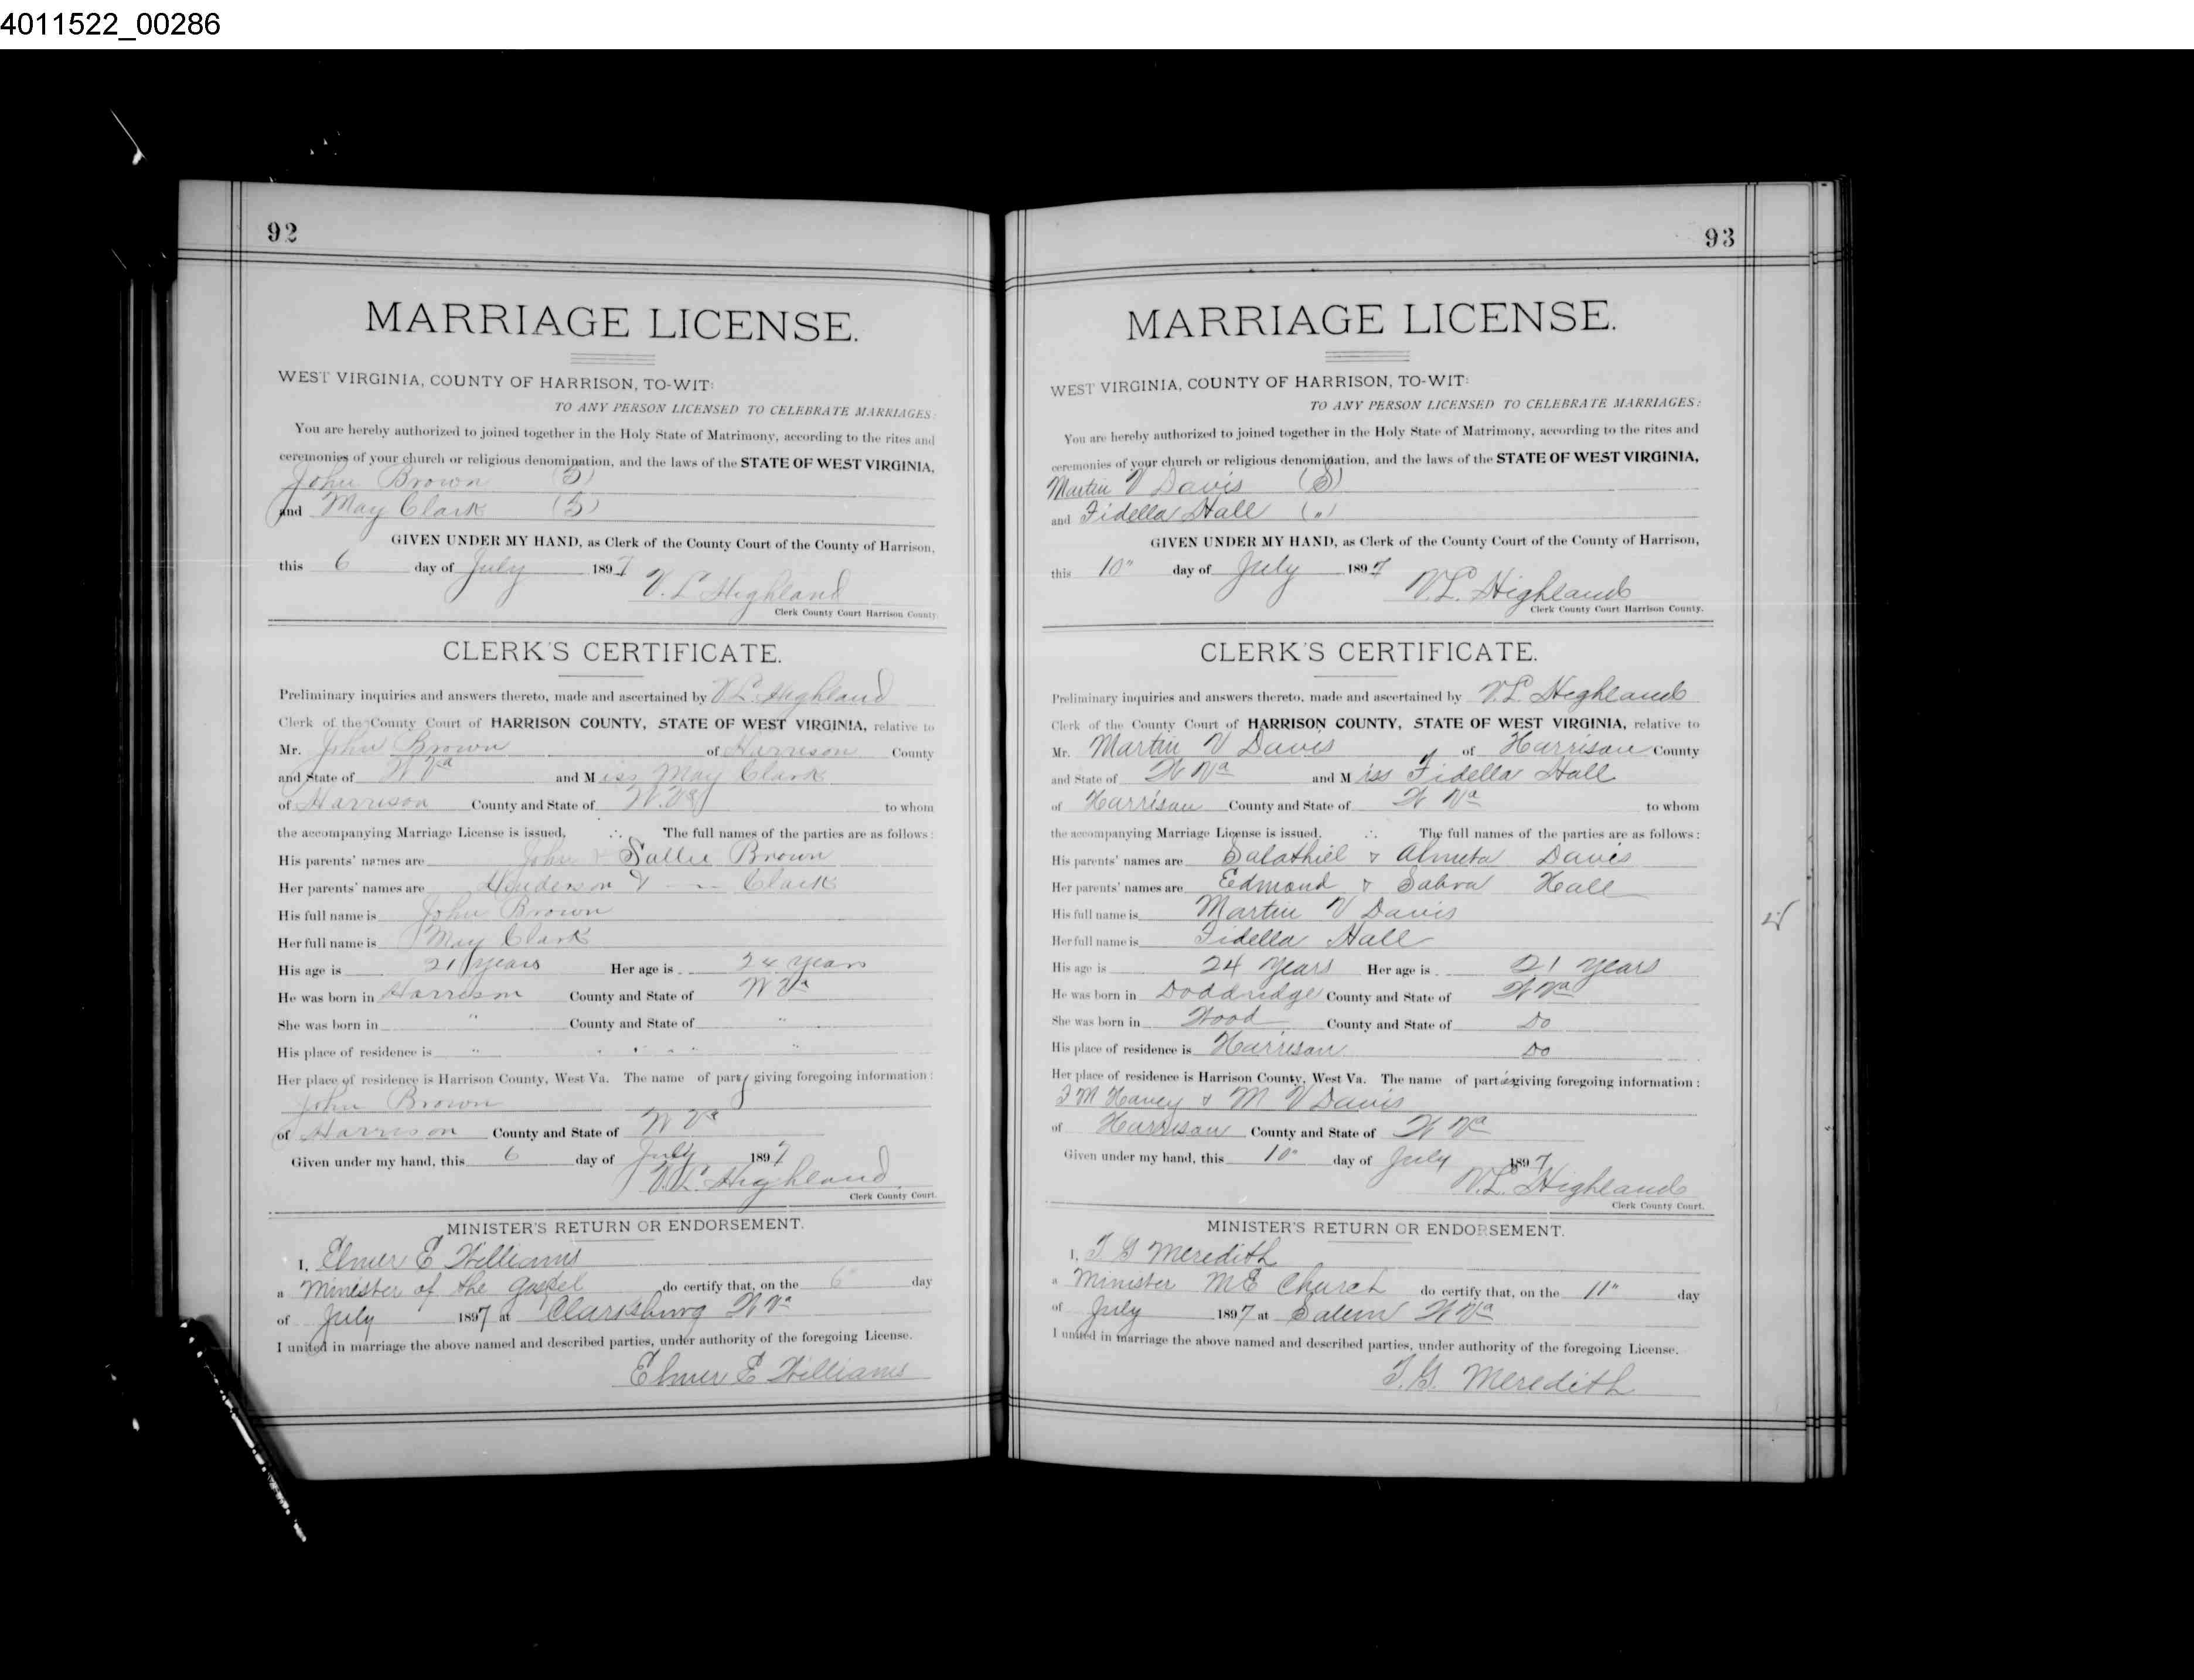 4011522_00286
92
MARRIAGE LICENSE.
WEST VIRGINIA, COUNTY OF HARRISON, TO-WIT:
TO ANY PERSON LICENSED TO CELEBRATE MARRIAGES:
You are hereby authorized to joined together in the Holy State of Matrimony, according to the rites and
ceremonies of your church or religious denomination, and the laws of the STATE OF WEST VIRGINIA,
John Brown (S)
and May Clark (S)
GIVEN UNDER MY HAND, as Clerk of the County Court of the County of Harrison,
this 6 day of July 1897
V. L. Highland
Clerk County Court Harrison County.
CLERK'S CERTIFICATE.
Preliminary inquiries and answers thereto, made and ascertained by V. L. Highland
Clerk of the County Court of HARRISON COUNTY, STATE OF WEST VIRGINIA, relative to
Mr. John Brown of Harrison County
and State of W Va and Miss May Clark
of Harrison County and State of W. Va to whom
the accompanying Marriage License is issued. The full names of the parties are as follows:
His parents' names are John & Sallie Brown
Her parents' names are Henderson & — Clark
His full name is John Brown
Her full name is May Clark
His age is 21 years Her age is 24 years
He was born in Harrison County and State of W Va
She was born in " County and State of "
His place of residence is " " " " "
Her place of residence is Harrison County, West Va. The name of party giving foregoing information:
John Brown
of Harrison County and State of W Va
Given under my hand, this 6 day of July 1897
V. L. Highland
Clerk County Court.
MINISTER'S RETURN OR ENDORSEMENT.
I, Elmer E Williams
a Minister of the Gospel do certify that, on the 6" day
of July 1897 at Clarksburg W Va
I united in marriage the above named and described parties, under authority of the foregoing License.
Elmer E Williams
93
MARRIAGE LICENSE.
WEST VIRGINIA, COUNTY OF HARRISON, TO-WIT:
TO ANY PERSON LICENSED TO CELEBRATE MARRIAGES:
You are hereby authorized to joined together in the Holy State of Matrimony, according to the rites and
ceremonies of your church or religious denomination, and the laws of the STATE OF WEST VIRGINIA,
Martin V Davis (S)
and Fidella Hall (")
GIVEN UNDER MY HAND, as Clerk of the County Court of the County of Harrison,
this 10" day of July 1897
V. L. Highland
Clerk County Court Harrison County.
CLERK'S CERTIFICATE.
Preliminary inquiries and answers thereto, made and ascertained by V. L. Highland
Clerk of the County Court of HARRISON COUNTY, STATE OF WEST VIRGINIA, relative to
Mr. Martin V Davis of Harrison County
and State of W Va and Miss Fidella Hall
of Harrison County and State of W Va to whom
the accompanying Marriage License is issued. The full names of the parties are as follows:
His parents' names are Salathiel & Almeta Davis
Her parents' names are Edmond & Sabra Hall
His full name is Martin V Davis
Her full name is Fidella Hall
His age is 24 years Her age is 21 years
He was born in Doddridge County and State of W Va
She was born in Wood County and State of Do
His place of residence is Harrison Do
Her place of residence is Harrison County, West Va. The name of parties giving foregoing information:
F M Haney & M V Davis
of Harrison County and State of W Va
Given under my hand, this 10" day of July 1897
V. L. Highland
Clerk County Court.
MINISTER'S RETURN OR ENDORSEMENT.
I, T G Meredith
a Minister M E Church do certify that, on the 11" day
of July 1897 at Salem W Va
I united in marriage the above named and described parties, under authority of the foregoing License.
T. G. Meredith